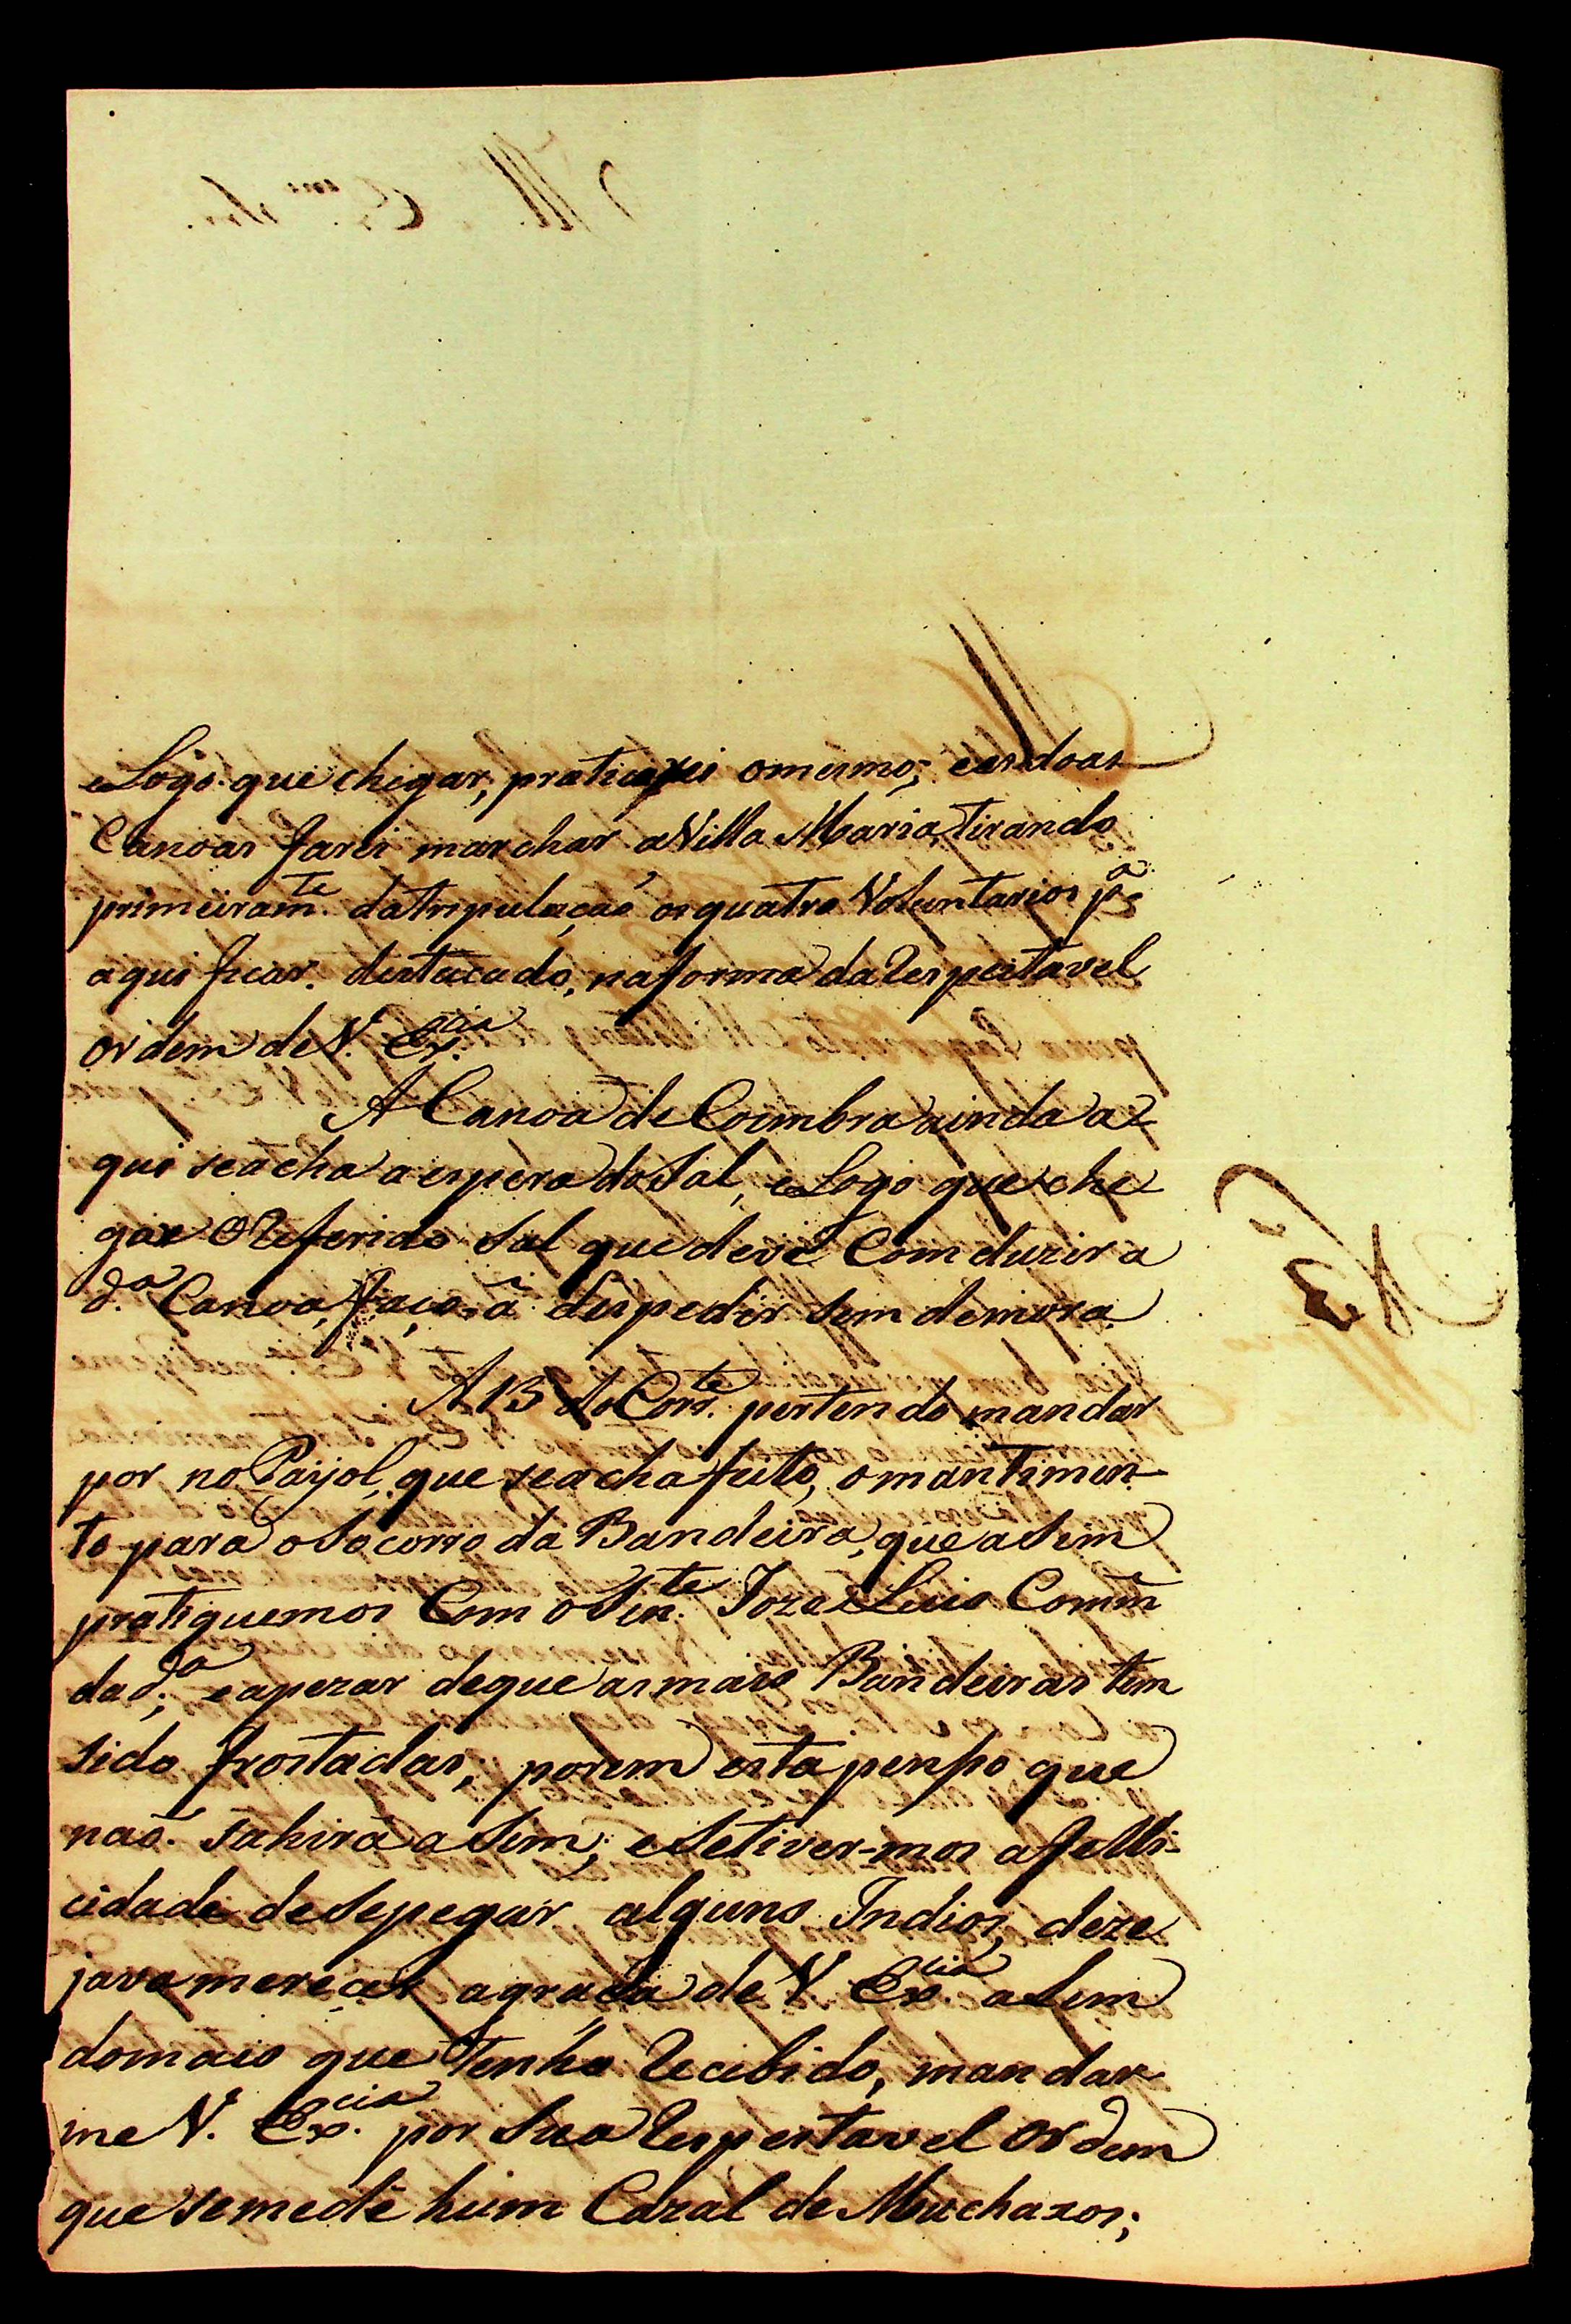 eLogo que chegar, praticarei omesmo; easdoas
Canoas farei marchar aVilla Maria, tirando
primeiram.te datripulaçaõ osquatro Voluntarios p.a
aqui ficar destacado, naforma daRespeitavel
ordem deV. Ex.cia
A Canoa de Coimbra ainda a-
qui seacha aespera doSal, eLogo que che
gar ORefferido Sal que deve Comduzir a
d.a Canoa, faço-ã despedir sem demora.
A 13 doCorr.te pertendo mandar
por noPayol, que seacha feito, omantimen-
to para oSocorro da Bandeira, que aSim
pratiquemos Com oTen.te Joze Luis Comm
dad.o; eapezar deque asmais Bandeiras tem
sido frostadas; porem esta penso que
naõ sahirá aSim; eSetiver-mos afelli-
cidade deSepegar alguns Indios, deze
java mereçer agraça de V. Ex.cia aSim
domais que Tenho Recebido, mandar
me V. Ex.cia por Sua Respeitavel Ordem
que semedê hum Cazal de Muchaxos;